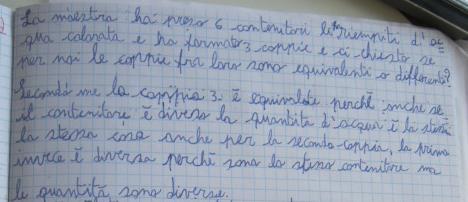 La maestra ha preso 6 contenitori li riempiti d'ac=
qua colorata e ha formato 3 coppie e ci chiesto se
per noi le coppie fra loro sono equivalenti o differenti?
Secondo me la coppia 3 è equivalete perchè anche se
il contenitore è diverso la quantità d'acqua è la stessa
la stessa cosa anche per la seconda coppia, la prima
invece è diversa perchè sono lo stesso contenitore ma
le quantità sono diverse.